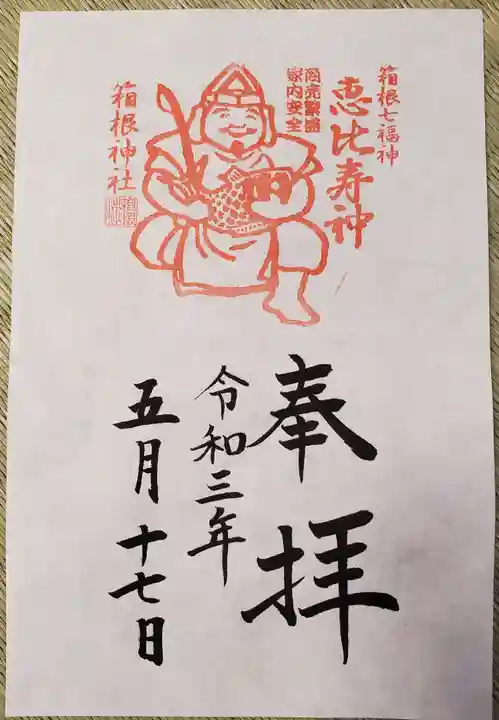 箱根七福神
恵比寿神
商売繁盛
家内安全
箱根神社
奉拝
令和三年
五月十七日